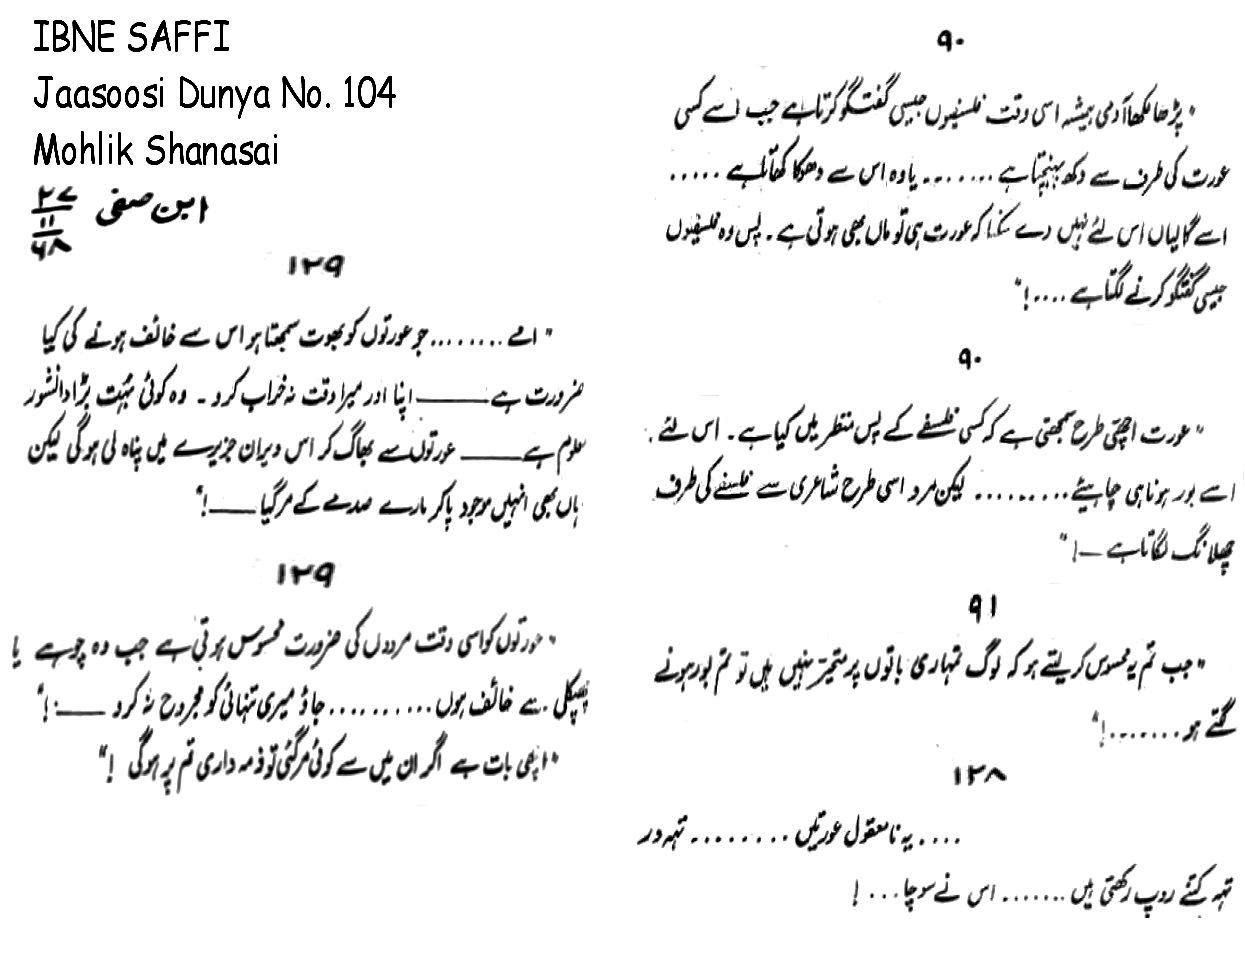 IBNE SAFFI
Jaasoosi Dunya No. 104
Mohlik Shanasai
ابن صفی
۲۷
۱۱
۶۸
۹۰
"پڑھا لکھا آدمی ہمیشہ اسی وقت فلسفیوں جیسی گفتگو کرتا ہے جب اسے کسی
عورت کی طرف سے دکھ پہنچتا ہے ........ یا وہ اس سے دھوکا کھاتا ہے .....
اسے گالیاں اس لئے نہیں دے سکتا کہ عورت ہی تو ماں بھی ہوتی ہے۔ پس وہ فلسفیوں
جیسی گفتگو کرنے لگتا ہے ....!"
۹۰
"عورت اچھی طرح سمجھتی ہے کہ کسی فلسفے کے پس منظر میں کیا ہے۔ اس لئے
اسے بور ہونا ہی چاہیئے ......... لیکن مرد اسی طرح شاعری سے فلسفے کی طرف
چھلانگ لگاتا ہے —!"
۹۱
"جب تم یہ محسوس کر لیتے ہو کہ لوگ تمہاری باتوں پر متحیر نہیں ہیں تو تم بور ہونے
لگتے ہو .......!"
۱۲۸
.... یہ نامعقول عورتیں ........ تہہ در
تہہ کتنے روپ رکھتی ہیں ....... اس نے سوچا ...!
۱۲۹
"امے ........ جو عورتوں کو بھوت سمجھتا ہو اس سے خائف ہونے کی کیا
ضرورت ہے —— اپنا اور میرا وقت نہ خراب کرو۔ وہ کوئی بہت بڑا دانشور
معلوم ہے —— عورتوں سے بھاگ کر اس ویران جزیرے میں پناہ لی ہوگی لیکن
یہاں بھی انہیں موجود پاکر مارے صدمے کے مر گیا ——!"
۱۲۹
"عورتوں کو اسی وقت مردوں کی ضرورت محسوس ہوتی ہے جب وہ چوہے یا
چھپکلی سے خائف ہوں .......... جاؤ میری تنہائی کو مجروح نہ کرو ——!"
"اچھی بات ہے اگر ان میں سے کوئی مر گئی تو ذمہ داری تم پر ہوگی !"